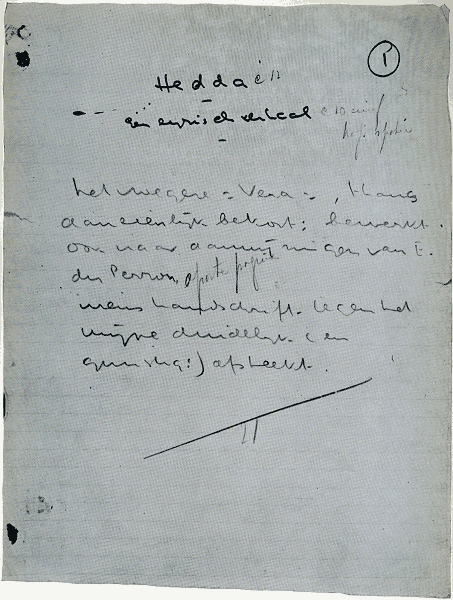 Hedda
een lyrisch verhaal
het vroegere = Vera =, thans
aanzienlijk bekort; bewerkt
ook naar aanwijzingen van E.
du Perron,
wiens handschrift tegen het
mijne duidelijk (en
gunstig!) afsteekt.
1